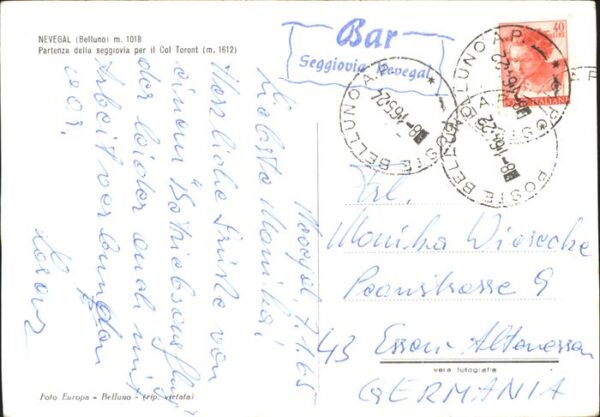 NEVEGAL (Belluno) m. 1018
Partenza della seggiovia per il Col Toront (m. 1612)
Bar
Seggiovia Nevegal
40
LIRE
POSTE ITALIANE
POSTE BELLUNO A.P.
POSTE BELLUNO A.P.
Nevegal, 7.1.65
Liebste Monika!
Herzliche Grüße von
einem Betriebsausflug
der leider auch mit
Arbeit verbunden
war.
Frl.
Monika Wiesecke
Peanstrasse 9
43 Essen Altenessen
GERMANIA
vera fotografia
Foto Europa - Belluno - (rip. vietata)